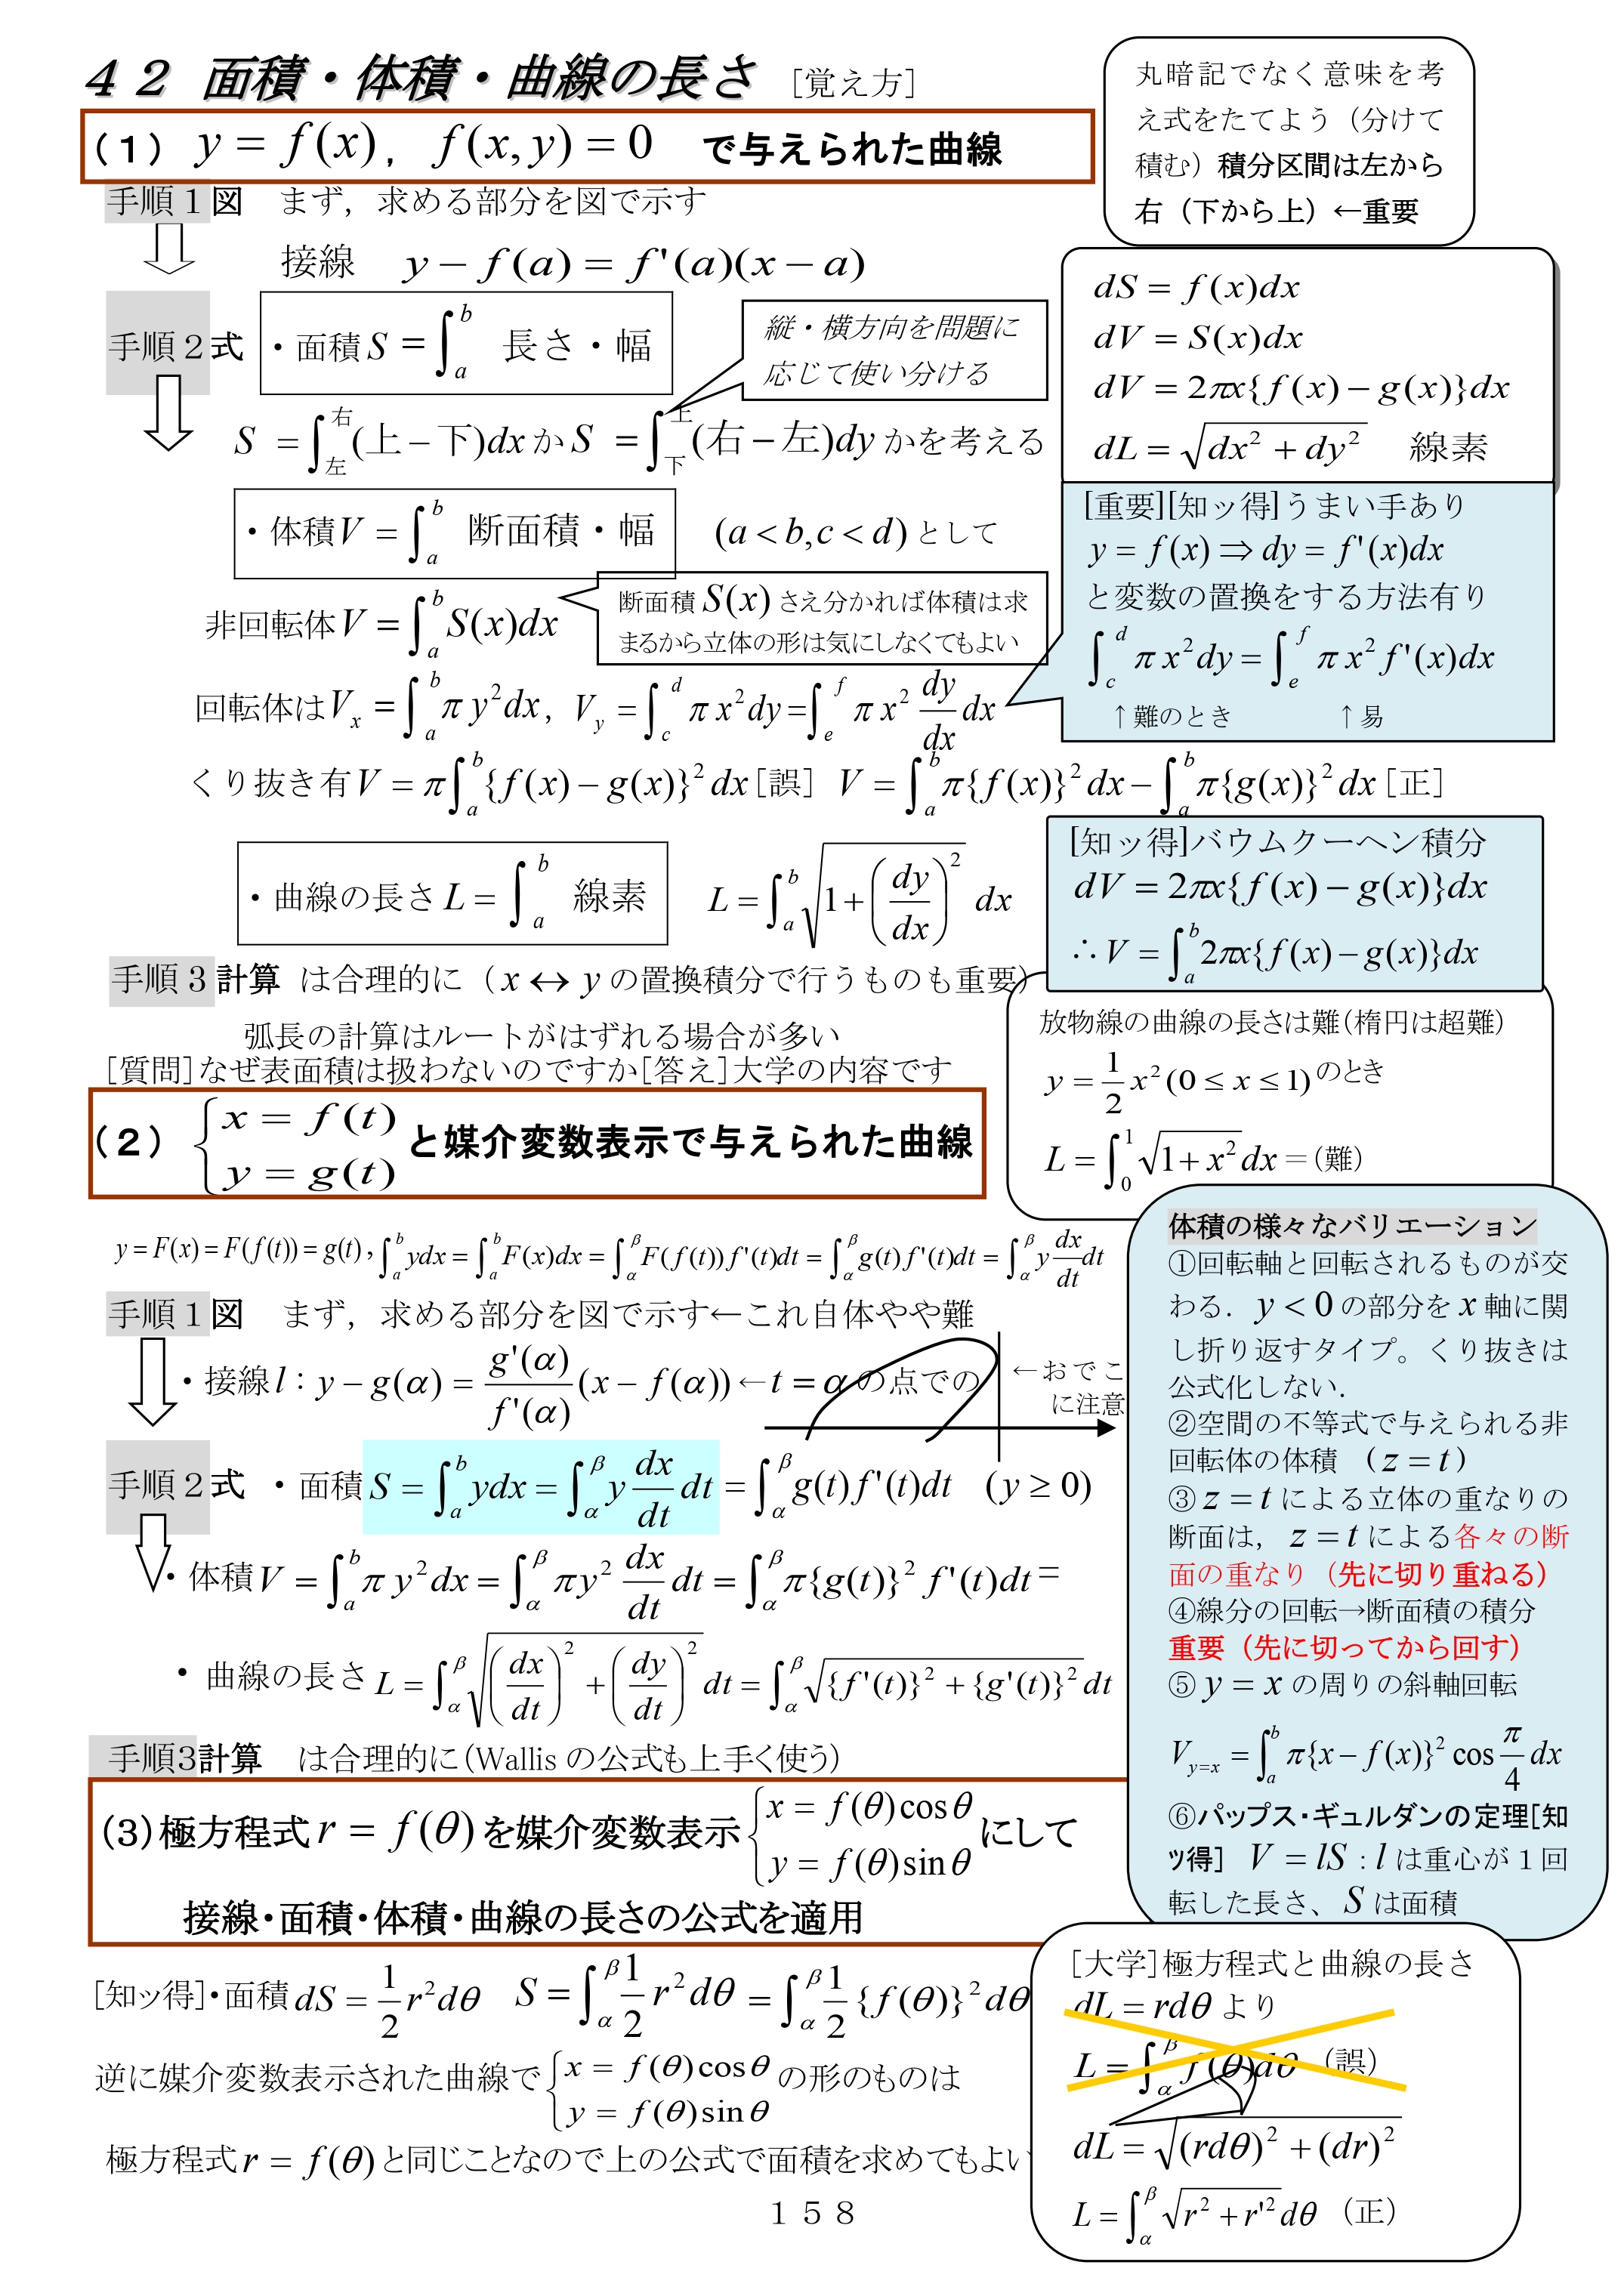 ４２ 面積・体積・曲線の長さ ［覚え方］
丸暗記でなく意味を考
え式をたてよう（分けて
積む）積分区間は左から
右（下から上）←重要
（１） y = f(x)， f(x,y) = 0 で与えられた曲線
手順１図 まず，求める部分を図で示す
接線 y − f(a) = f'(a)(x − a)
dS = f(x)dx
dV = S(x)dx
dV = 2πx{f(x) − g(x)}dx
dL = √(dx² + dy²) 線素
手順２式 ・面積 S = ∫_a^b 長さ・幅
縦・横方向を問題に
応じて使い分ける
S = ∫_左^右 (上 − 下)dx か S = ∫_下^上 (右 − 左)dy かを考える
・体積 V = ∫_a^b 断面積・幅 (a < b, c < d) として
[重要][知ッ得]うまい手あり
y = f(x) ⇒ dy = f'(x)dx
と変数の置換をする方法有り
∫_c^d πx²dy = ∫_e^f πx² f'(x)dx
↑難のとき ↑易
非回転体 V = ∫_a^b S(x)dx
断面積 S(x) さえ分かれば体積は求
まるから立体の形は気にしなくてもよい
回転体は V_x = ∫_a^b πy²dx， V_y = ∫_c^d πx²dy = ∫_e^f πx² dy/dx dx
くり抜き有 V = π∫_a^b {f(x) − g(x)}² dx［誤］ V = ∫_a^b π{f(x)}² dx − ∫_a^b π{g(x)}² dx［正］
・曲線の長さ L = ∫_a^b 線素 L = ∫_a^b √(1 + (dy/dx)²) dx
[知ッ得]バウムクーヘン積分
dV = 2πx{f(x) − g(x)}dx
∴ V = ∫_a^b 2πx{f(x) − g(x)}dx
手順３計算 は合理的に（x ↔ y の置換積分で行うものも重要）
弧長の計算はルートがはずれる場合が多い
［質問］なぜ表面積は扱わないのですか［答え］大学の内容です
放物線の曲線の長さは難（楕円は超難）
y = 1/2 x² (0 ≤ x ≤ 1) のとき
L = ∫_0^1 √(1 + x²) dx =（難）
（２） { x = f(t)
y = g(t) と媒介変数表示で与えられた曲線
y = F(x) = F(f(t)) = g(t)，∫_a^b ydx = ∫_a^b F(x)dx = ∫_α^β F(f(t))f'(t)dt = ∫_α^β g(t)f'(t)dt = ∫_α^β y dx/dt dt
手順１図 まず，求める部分を図で示す←これ自体やや難
・接線 l：y − g(α) = g'(α)/f'(α) (x − f(α)) ← t = α の点での
←おでこ
に注意
手順２式 ・面積 S = ∫_a^b ydx = ∫_α^β y dx/dt dt = ∫_α^β g(t)f'(t)dt (y ≥ 0)
・体積 V = ∫_a^b πy²dx = ∫_α^β πy² dx/dt dt = ∫_α^β π{g(t)}² f'(t)dt =
・曲線の長さ L = ∫_α^β √((dx/dt)² + (dy/dt)²) dt = ∫_α^β √({f'(t)}² + {g'(t)}²) dt
手順3計算 は合理的に（Wallis の公式も上手く使う）
体積の様々なバリエーション
①回転軸と回転されるものが交
わる．y < 0 の部分を x 軸に関
し折り返すタイプ。くり抜きは
公式化しない．
②空間の不等式で与えられる非
回転体の体積 （z = t）
③z = t による立体の重なりの
断面は，z = t による各々の断
面の重なり（先に切り重ねる）
④線分の回転→断面積の積分
重要（先に切ってから回す）
⑤y = x の周りの斜軸回転
V_{y=x} = ∫_a^b π{x − f(x)}² cos π/4 dx
⑥パップス・ギュルダンの定理[知
ッ得] V = lS：l は重心が１回
転した長さ、S は面積
(3)極方程式 r = f(θ) を媒介変数表示 { x = f(θ)cosθ
y = f(θ)sinθ にして
接線・面積・体積・曲線の長さの公式を適用
[知ッ得]・面積 dS = 1/2 r²dθ S = ∫_α^β 1/2 r²dθ = ∫_α^β 1/2 {f(θ)}² dθ
逆に媒介変数表示された曲線で { x = f(θ)cosθ
y = f(θ)sinθ の形のものは
極方程式 r = f(θ) と同じことなので上の公式で面積を求めてもよい
［大学］極方程式と曲線の長さ
dL = rdθ より
L = ∫_α^β f(θ)dθ （誤）
dL = √((rdθ)² + (dr)²)
L = ∫_α^β √(r² + r'²) dθ （正）
１５８